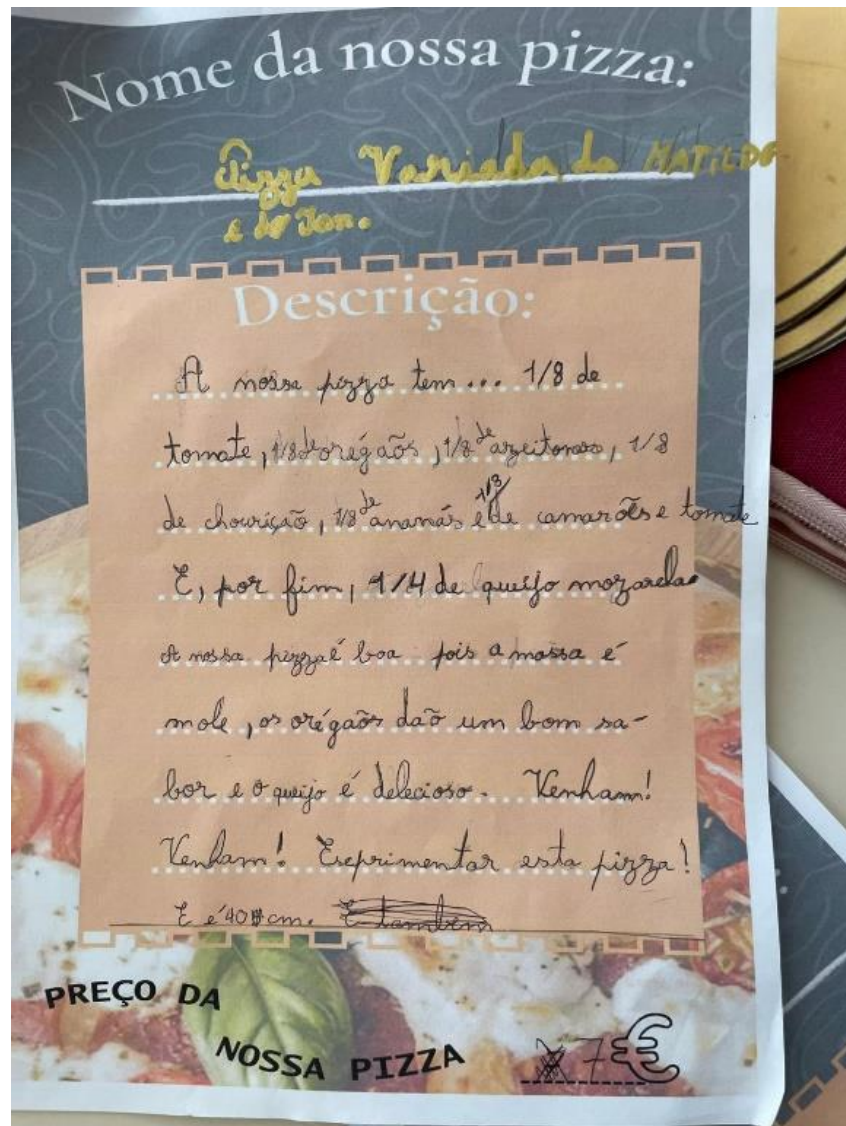 Nome da nossa pizza:
Pizza Variada da MATILDE
e do Ian.
Descrição:
A nossa pizza tem... 1/8 de
tomate, 1/8 de orégaõs, 1/8 de azeitonas, 1/8
de chouriçaõ, 1/8 de ananás e 1/8 de camarões e tomate
E, por fim, 1/4 de queijo mozarela.
A nossa pizza é boa pois a massa é
mole, os orégaõs daõ um bom sa-
bor e o queijo é delecioso. Venham!
Venham! Eseprimentar esta pizza!
E é 40 cm. E também
PREÇO DA
NOSSA PIZZA 7€